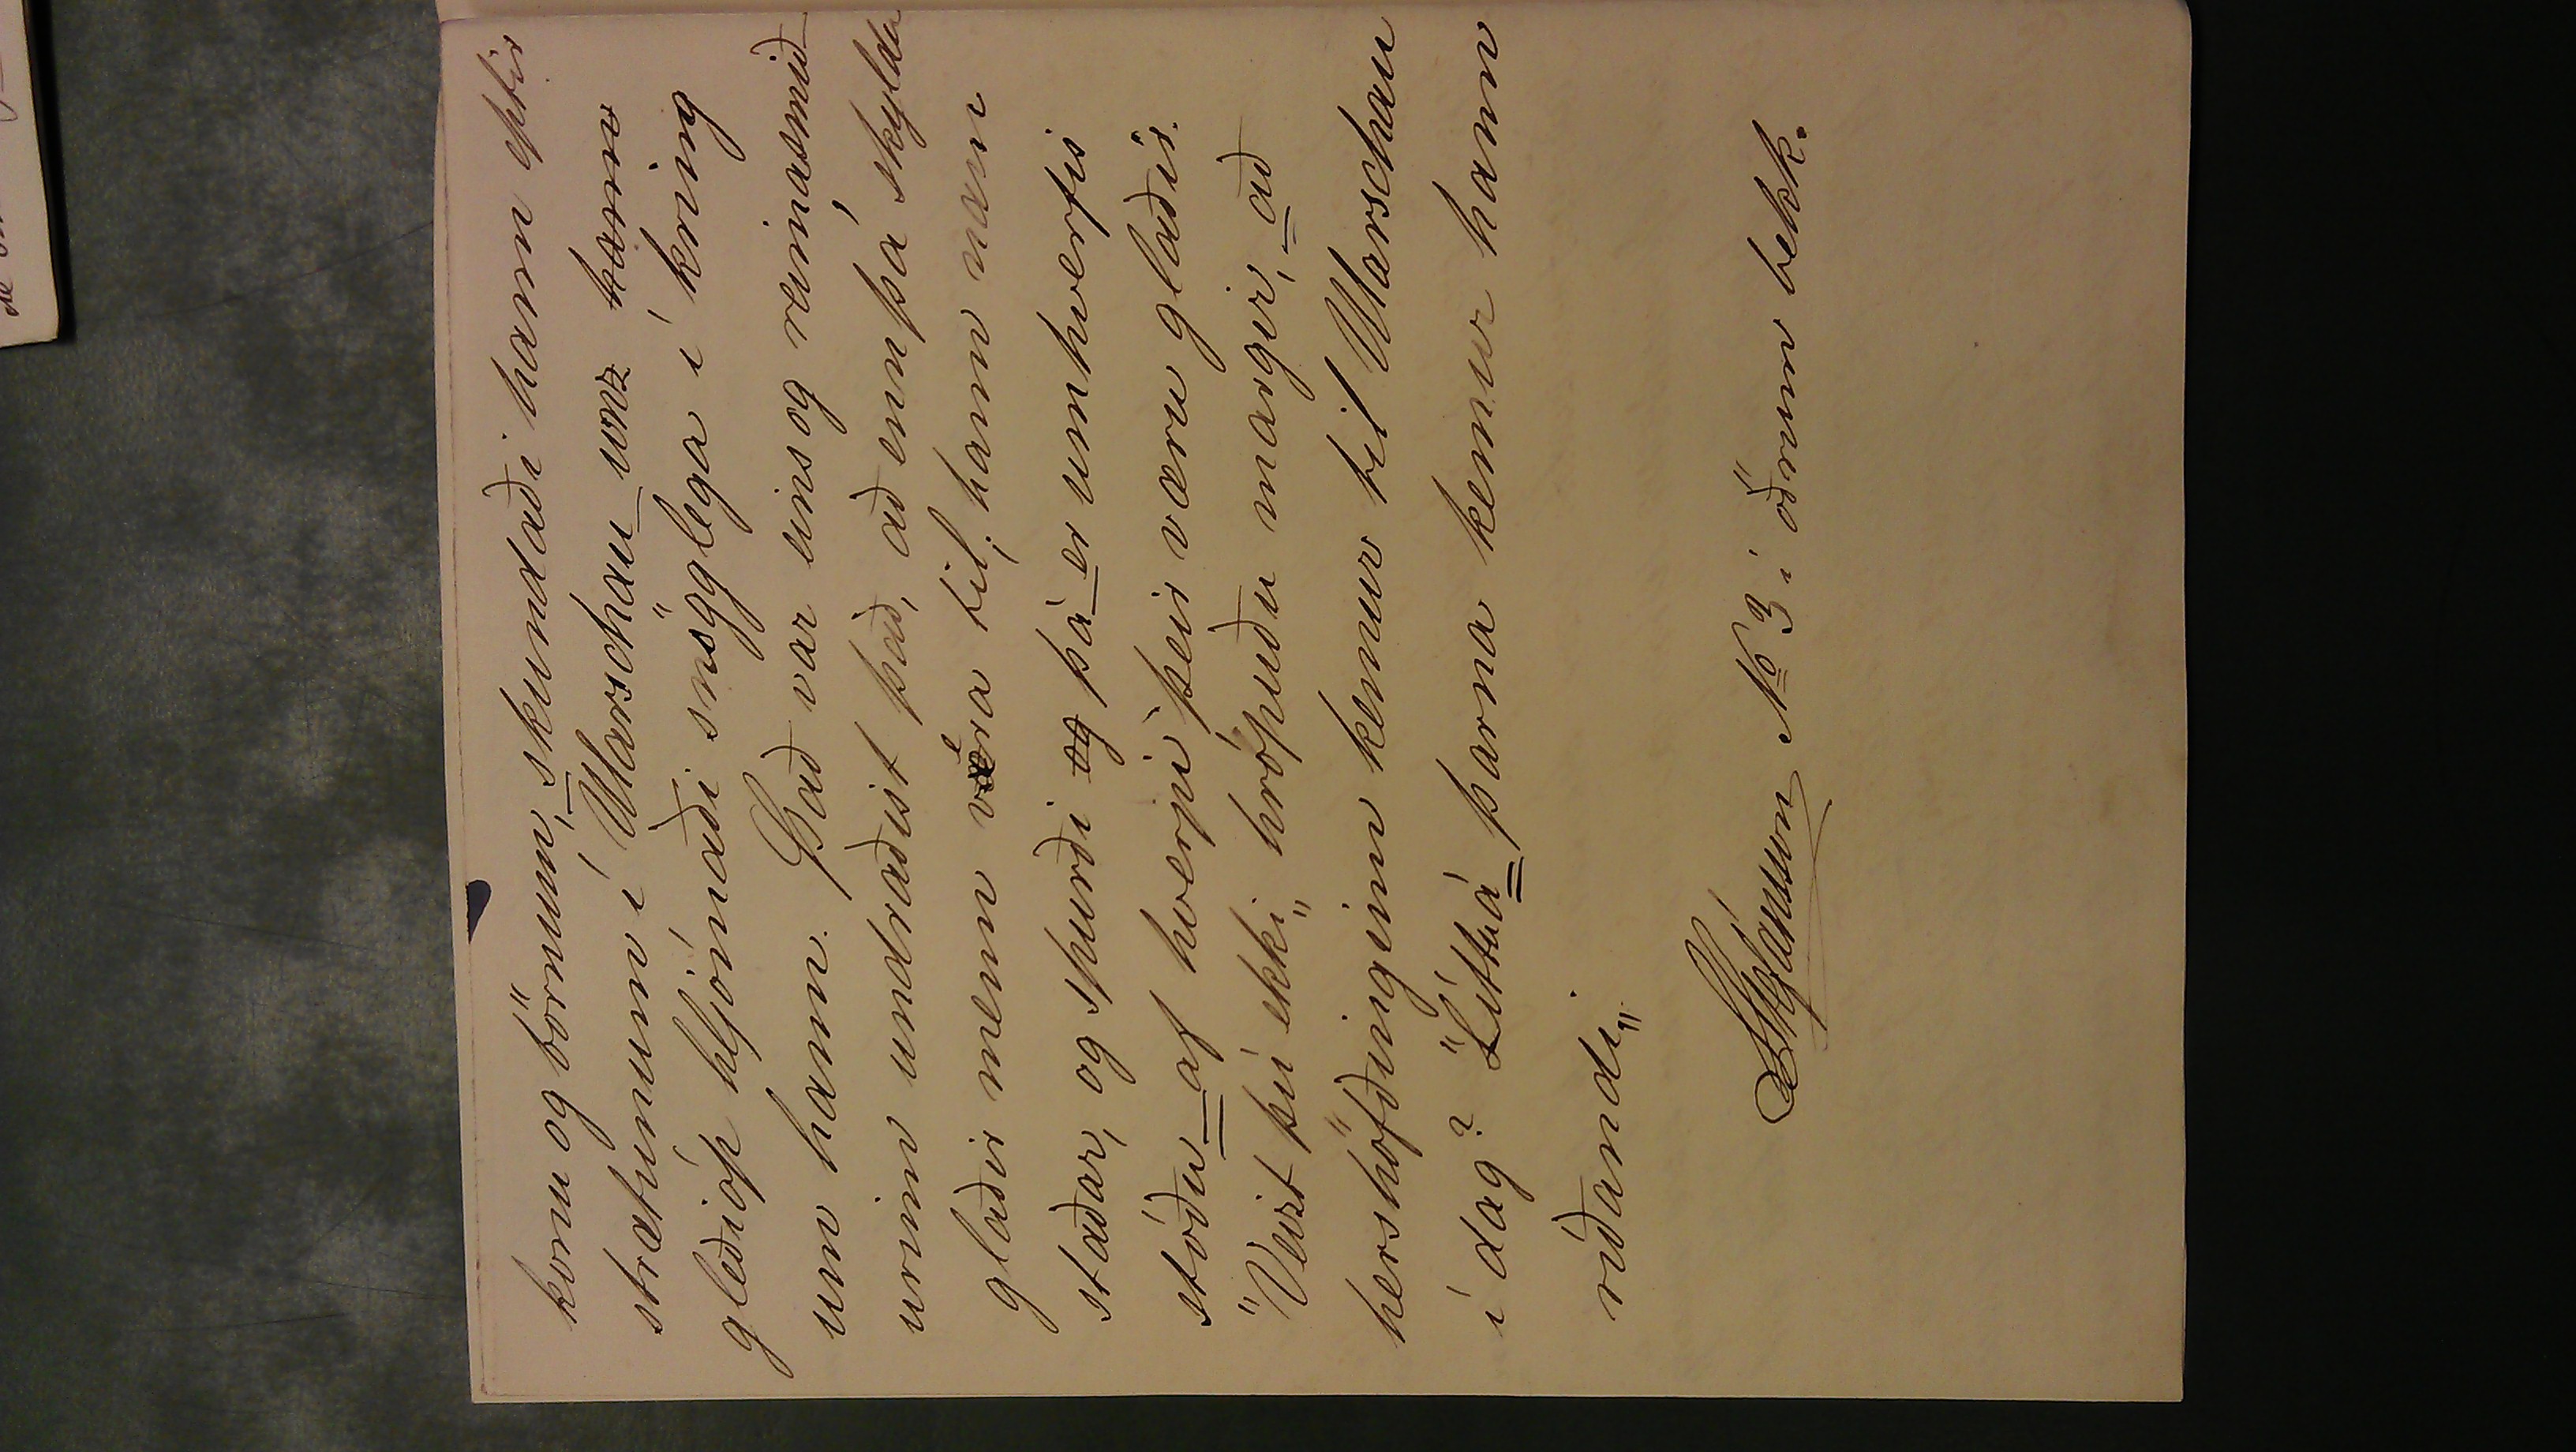 konu og börnum, skundaði hann eptir
strætunum í Warschau voru hann
gleðióp hljómaði snögglega í kring
um hann. Það var eins og reimasmið
urinn undraðist það, að enn þá skyldu
glaðir menn véra til; hann nam
staðar, og spurði og þá er umhverfis
stóðu af hverju þeir væru glaðir.
"Veizt þú ekki" hrópuðu margir, að
hershöfðinginn kemur til Warschau
í dag? "Littú þarna kemur hann
ríðandi"
Stefánsson No 3 í öðrum bekk.